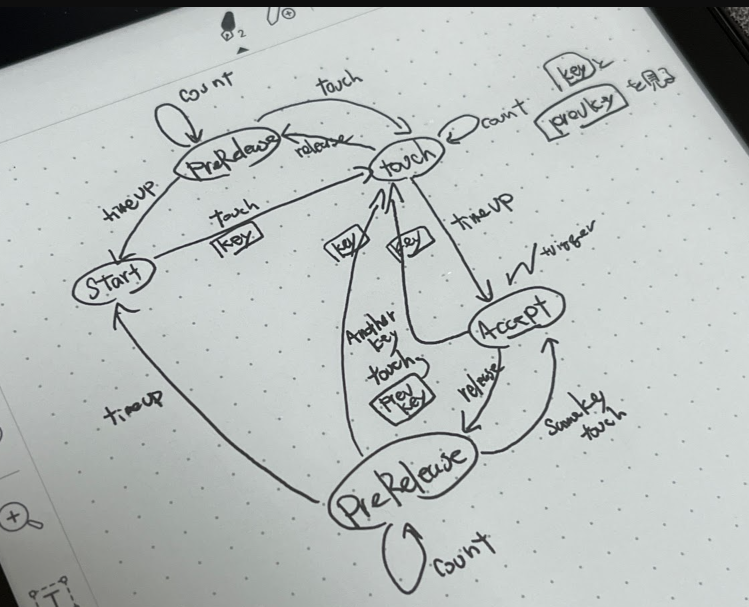 2
count
touch
key
と
prevkey
を見る
PreRelease
release
touch
count
timeup
touch
key
key
key
timeup
trigger
Start
Accept
Another
key
touch
Prev
key
release
timeup
Samekey
touch
PreRelease
count
T